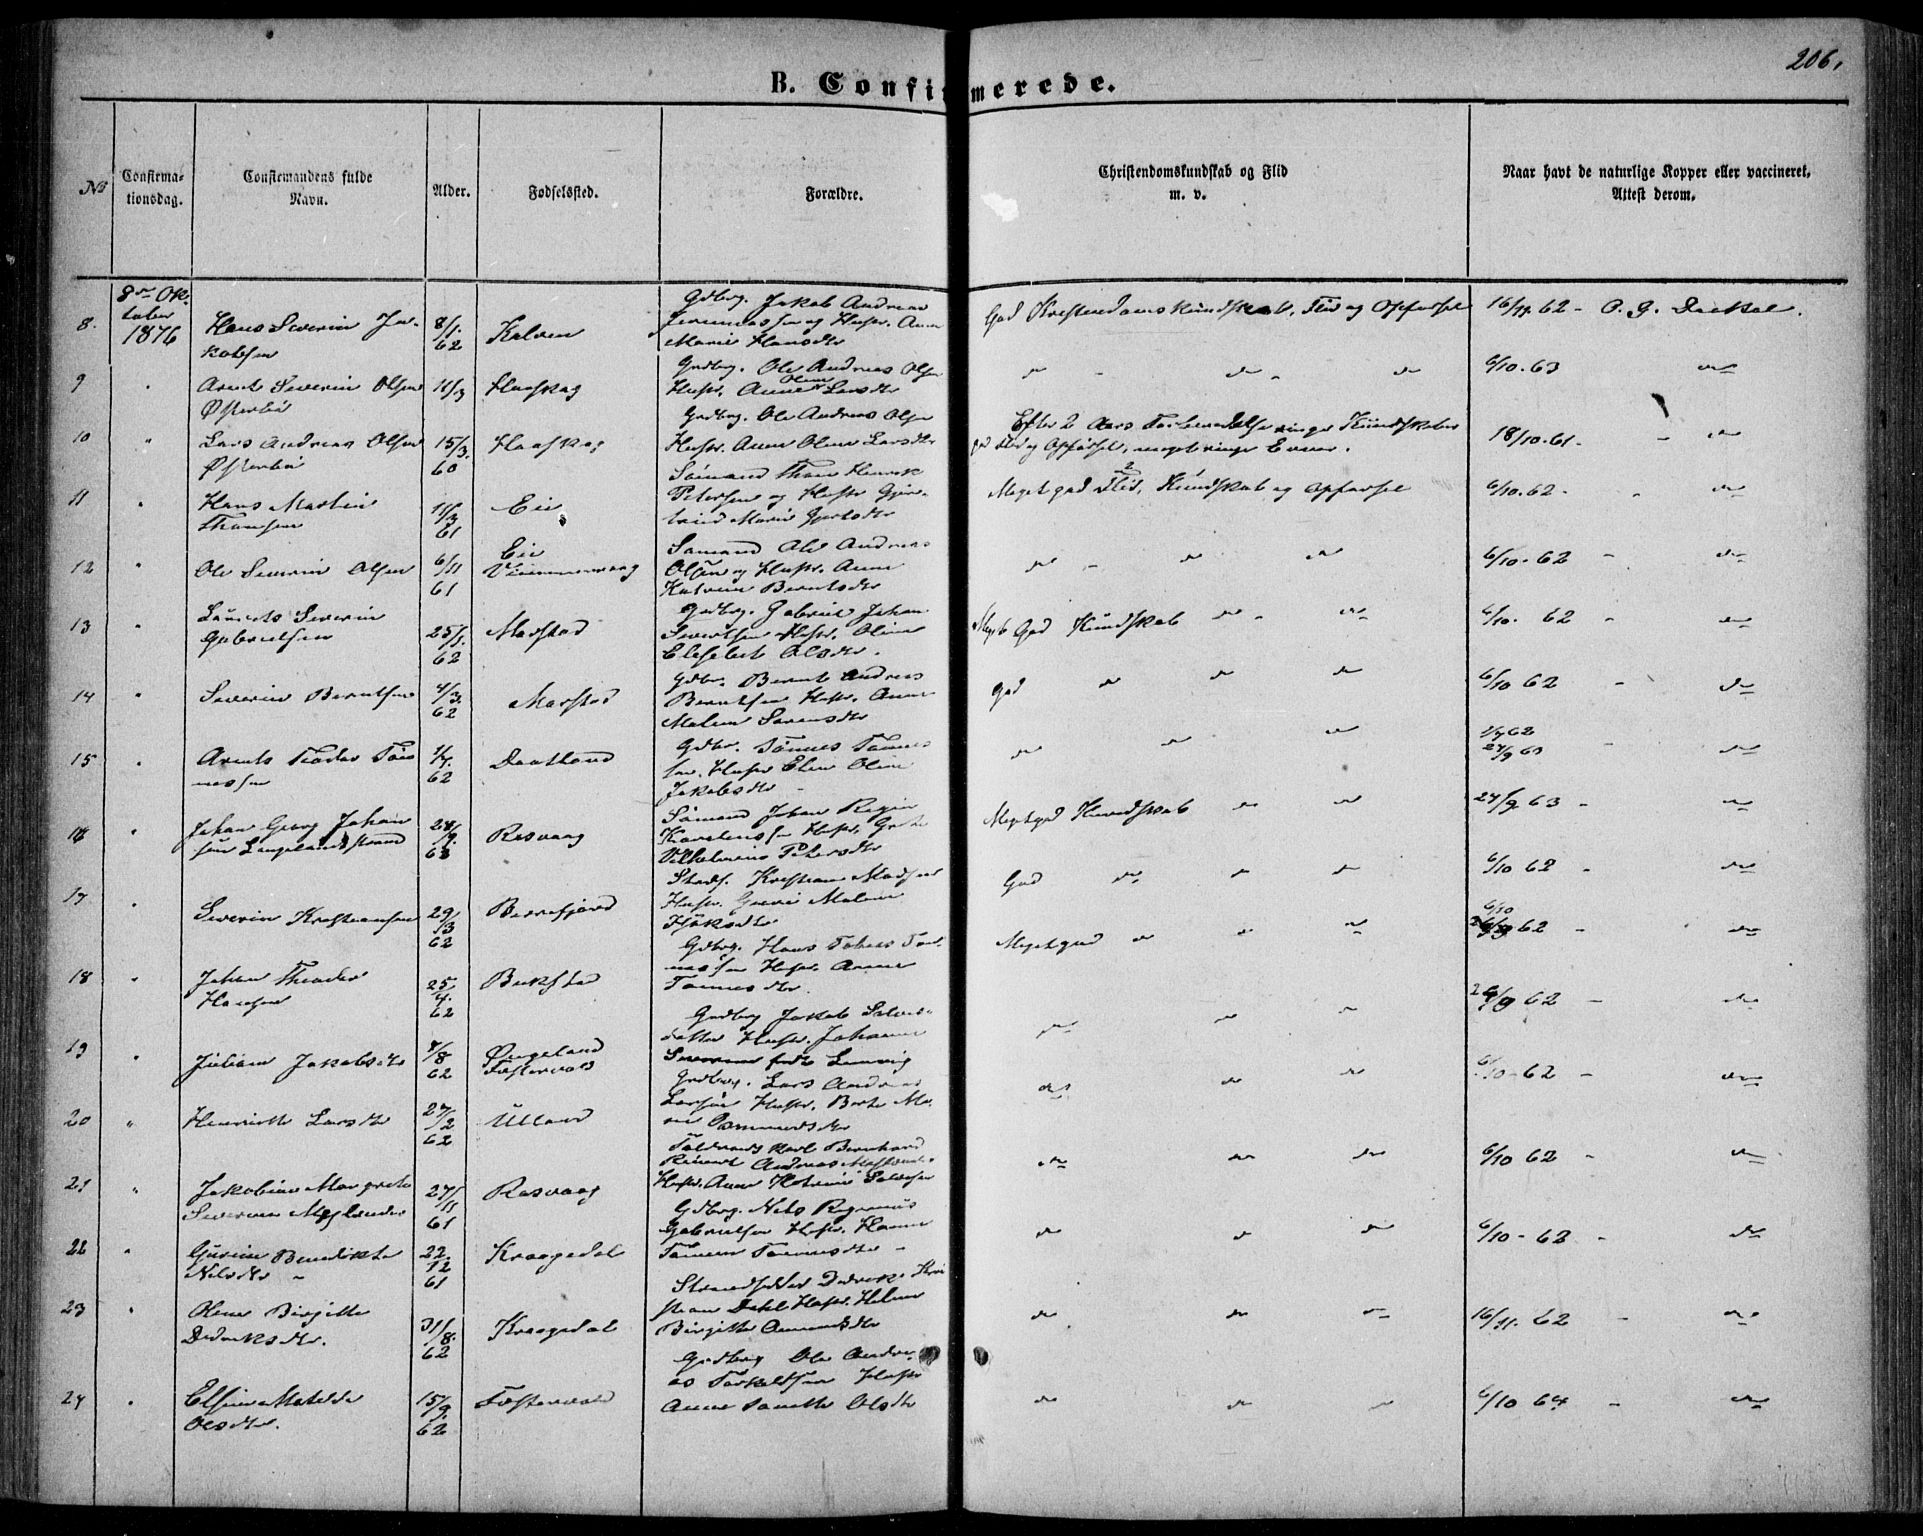 206.
B. Confirmerede.
No
Confirmationsdag.
Confirmandens fulde Navn.
Alder.
Fødselssted.
Forældre.
Christendomskundskab og Flid m. v.
Naar havt de naturlige Kopper eller vaccineret, Attest derom.
8de Oktober 1876
8. Hans Severin Jakobsen 8/1. 62 Kalven Gdbrg. Jakob Andreas Jeremiassen og Hustr. Anne Marie Hansdtr God Kristendomskundskab, Flid og Opførsel 16/11 62 -
9 " Arnt Severin Olsen Østerbø 11/3 Haaskag Grdbrg. Ole Andreas Olsen Hustr. Anne Oline Larsdtr do - do - do 6/10. 63 do
10 " Lars Andreas Olsen Østerbø 15/3. 60 Haaskag Grdbrg. Ole Andreas Olsen Hustr. Anne Oline Larsdtr Efter 2 Aars Forberedelse ringe Kundskaber god Flid og Opførsel, meget ringe Evner. 18/10. 61. - do
11 " Hans Martin Thomsen 11/3 61 Eie Sømand Thom Henrik Petersen og Hustr Gjertrud Marie Gjertsdtr Meget god Flid, Kundskab og Opførsel 6/10. 62 - do
12 " Ole Severin Olsen 6/11 61 Eie Sømand Ole Andreas Olsen og Hustr. Anne Katrine Berntsdtr do - do do 6/10. 62 - do
13 " Laurits Severin Gabrielsen 25/1. 62 Marstad Grdbrg. Gabriel Johan Sivertsen Hustr. Oline Elisabet Olsdtr. Meget God Kundskab do - do 6/10. 62 - do
14 " Severin Berntsen 4/3. 62 Marstad Gdbr. Bernt Andreas Berntsen Hustr. Anne Malene Sørensdtr God do do do 6/10 62 - do
15 " Arnts Teodor Tønnessen 62 Daatland Gdbr. Tønnes Tønnessen, Hustr Elen Oline Jakobsdtr do do do 62 24/9 63 - do
16 " Johan Georg Johansen Langelandsstrand 24/9. 63 Rasvaag Sømand Johan Regin Karstensen Hustr. Grete Vilhelmine Petersdtr Meget god Kundskab do do 24/9 63 - do
17 " Severin Kristiansen 29/3 62 Berrefjord Strds. Kristian Madsen Hustr. Gurine Malene God do do do 6/10 62 - do
18 " Johan Theodor Hansen 25/4. 62 Bukstad Gdbrg. Hans Tobias Tønnessen Hustr. Anne Tønnesdtr. Meget god do do do 6/10 62 - do
19 " Juliane Jakobsdtr 4/8 62 Øngeland Fostervold Grdbrg Jakob Hustr. Johanne Severine født do do do 62 - do
20 " Henriette Larsdtr 27/2 62 Ulland Grdbrg. Lars Andreas Larsen Hustr. Berte Marie do do do 6/10 - 62 - do
21 " Jakobine Margrete Severine Møglander 27/11 61 Rasvaag Bernhard Reinert Andreas Hustr. Anne Katrine Salvesen do do do 6/10 62 - do
22 " Gurine Benedikte Nilsdtr - 22/12 61 Kraagedal Gdbrg. Nils Regnius Gabrielsen Hustr. Hanne Tomine Tønnesdtr - do do do 6/10 - 62 - do
23 " Oline Birgitte Dedriksdtr. 31/8. 62 Kraagedal Strandsidder Dedrik Kristian Dahl Hustr. Helene Birgitte Amundsdtr do do do 16/11. 62 - do
24 " Elsine Matilde Olsdtr. 15/9. 62 Fostervold Grdbrg Ole Andreas Torkeldsen Hustr Anne Tonette Olsdtr do do do 6/10 64 - do